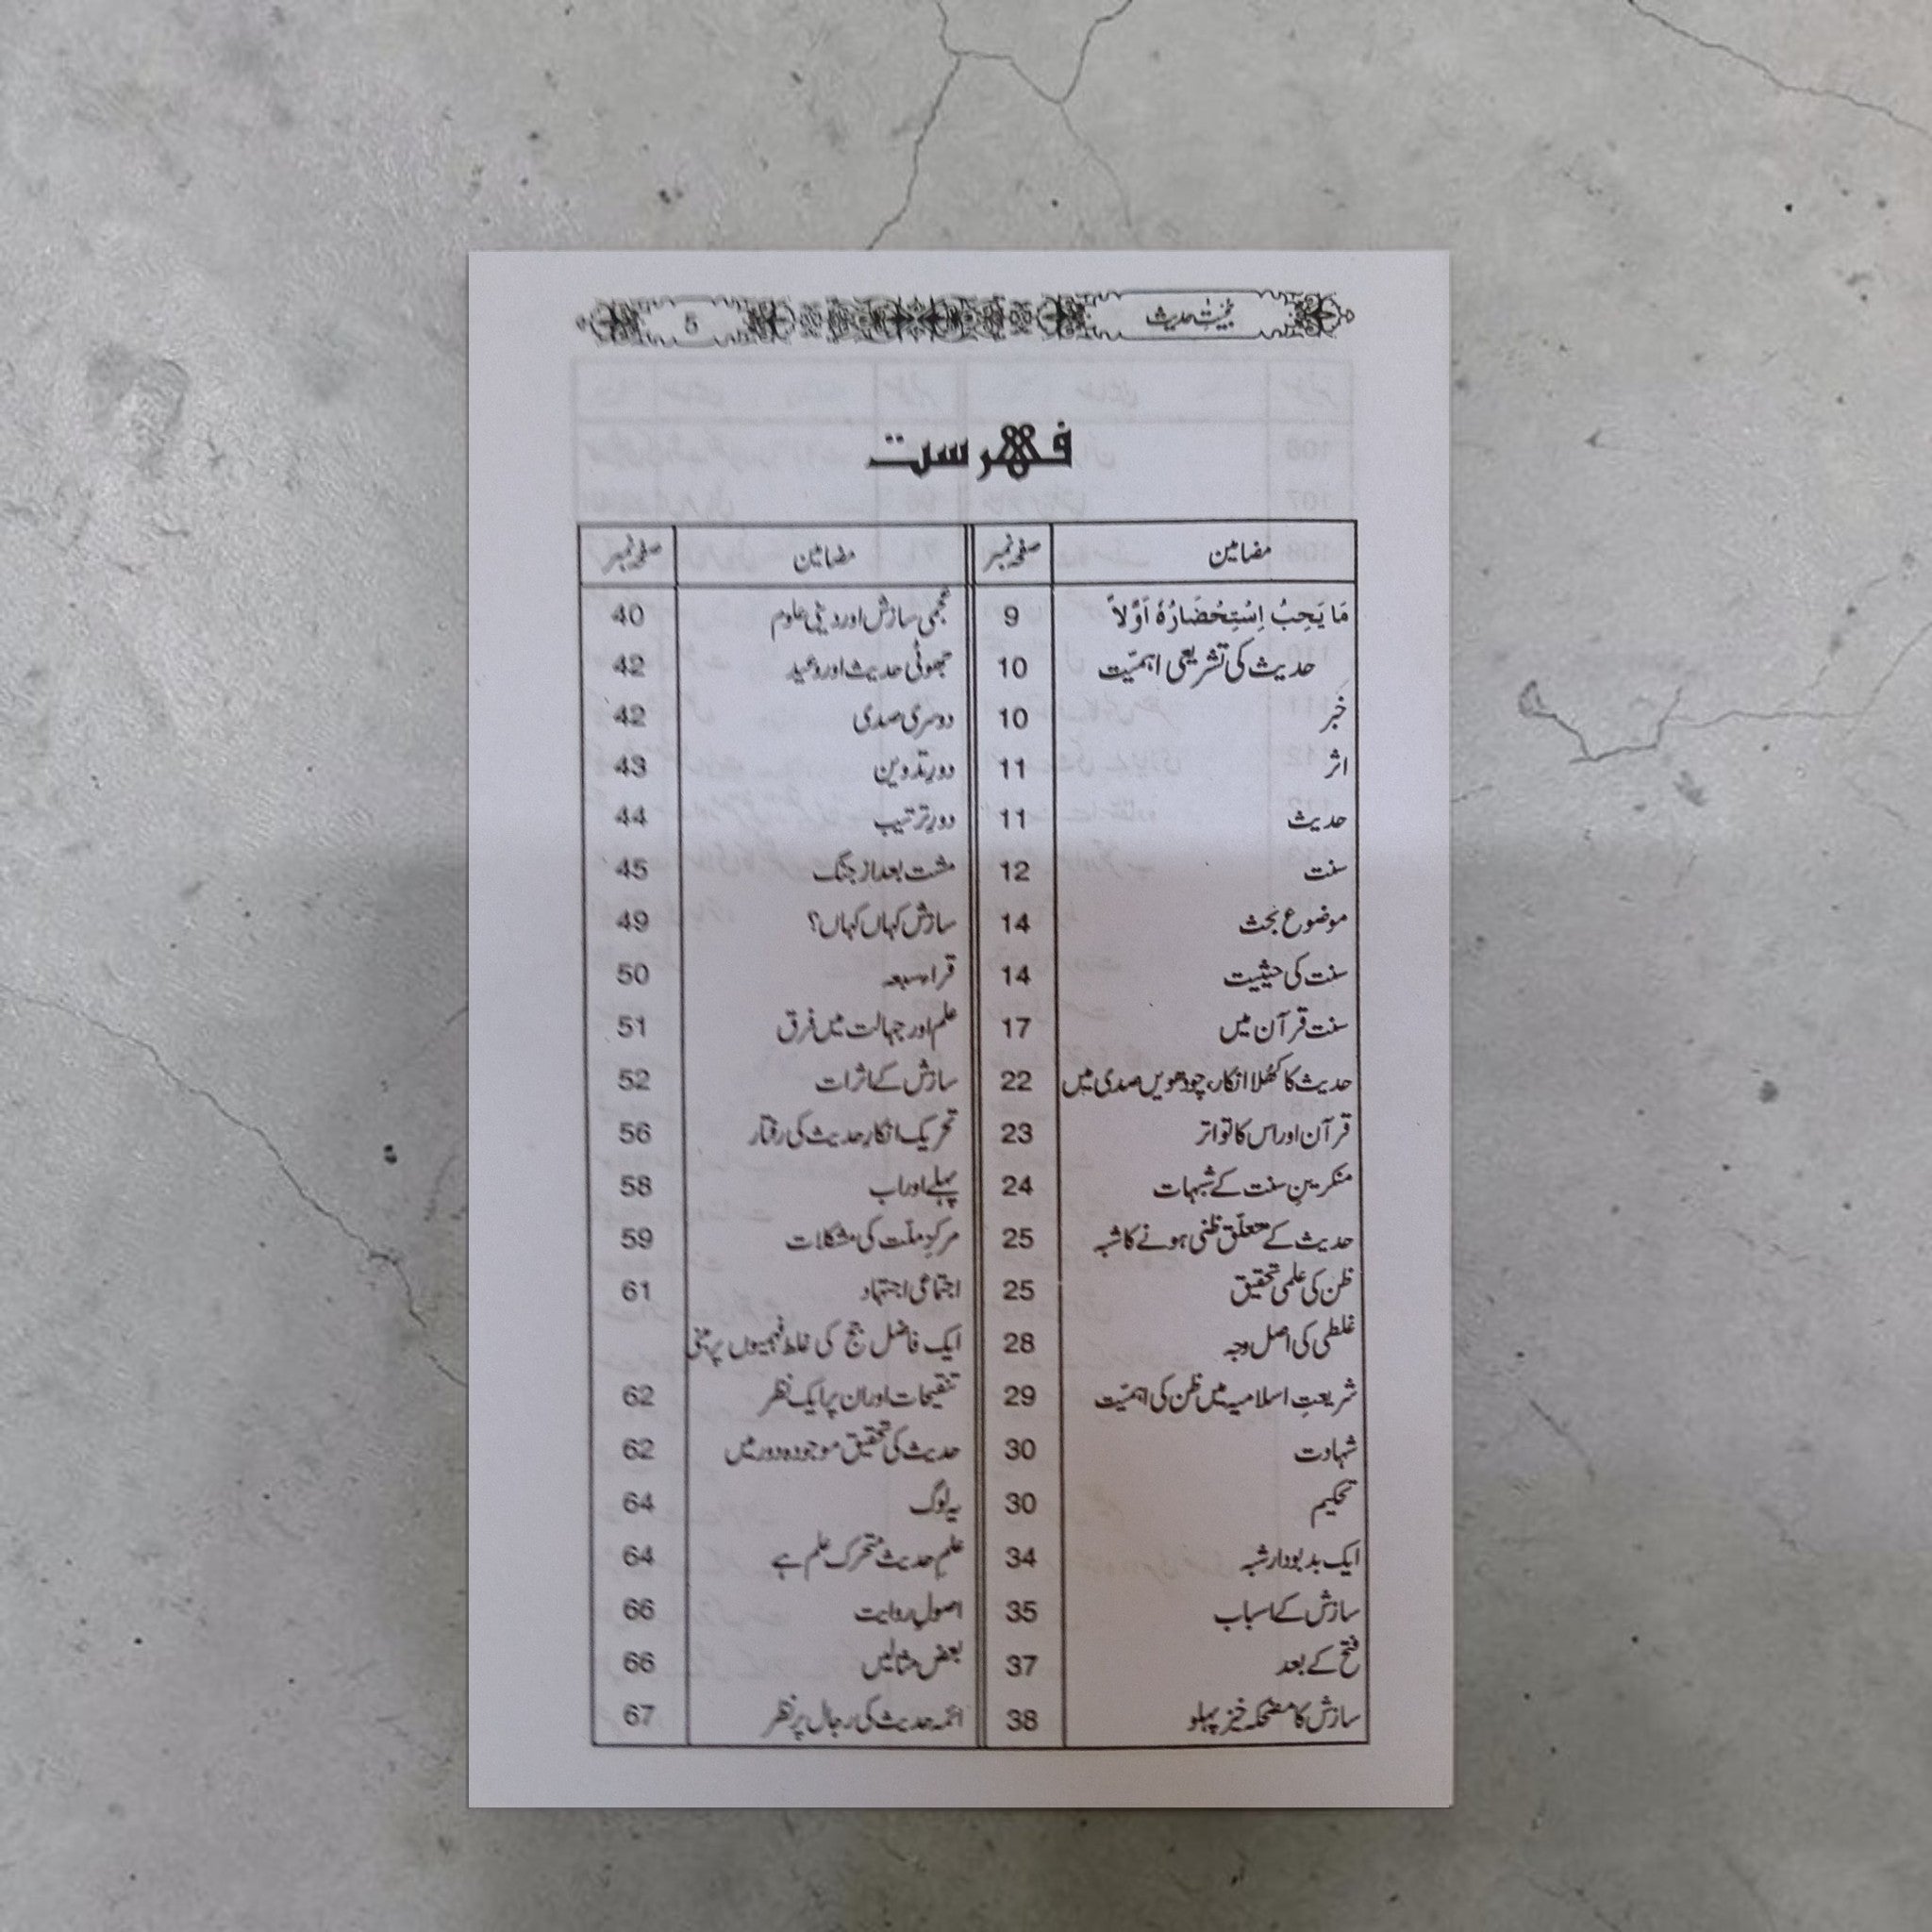 حُجّیتِ حدیث 5
فہرست
مضامین صفحہ نمبر مضامین صفحہ نمبر
مَا یَجِبُ اِسْتِحْضَارُہٗ اَوَّلاً 9 عجمی سازش اور دینی علوم 40
حدیث کی تشریعی اہمیّت 10 جھوٹی حدیث اور وعید 42
خبر 10 دوسری صدی 42
اثر 11 دورِ تدوین 43
حدیث 11 دورِ ترتیب 44
سنت 12 مشت بعد از جنگ 45
موضوع بحث 14 سازش کہاں کہاں؟ 49
سنت کی حیثیت 14 قراء سبعہ 50
سنت قرآن میں 17 علم اور جہالت میں فرق 51
حدیث کا کُھلا انکار، چودھویں صدی میں 22 سازش کے اثرات 52
قرآن اور اس کا تواتر 23 تحریک انکارِ حدیث کی رفتار 56
منکرینِ سنت کے شبہات 24 پہلے اور اب 58
حدیث کے متعلّق ظنی ہونے کا شبہ 25 مرکزِ ملّت کی مشکلات 59
ظن کی علمی تحقیق 25 اجتماعی اجتہاد 61
غلطی کی اصل وجہ 28 ایک فاضل جج کی غلط فہمیوں پر مبنی
شریعتِ اسلامیہ میں ظن کی اہمیّت 29 تنقیحات اور ان پر ایک نظر 62
شہادت 30 حدیث کی تحقیق موجودہ دور میں 62
تحکیم 30 یہ لوگ 64
ایک بدبودار شبہ 34 علمِ حدیث متحرک علم ہے 64
سازش کے اسباب 35 اصولِ روایت 66
فتح کے بعد 37 بعض مثالیں 66
سازش کا مضحکہ خیز پہلو 38 ائمہ حدیث کی رجال پر نظر 67